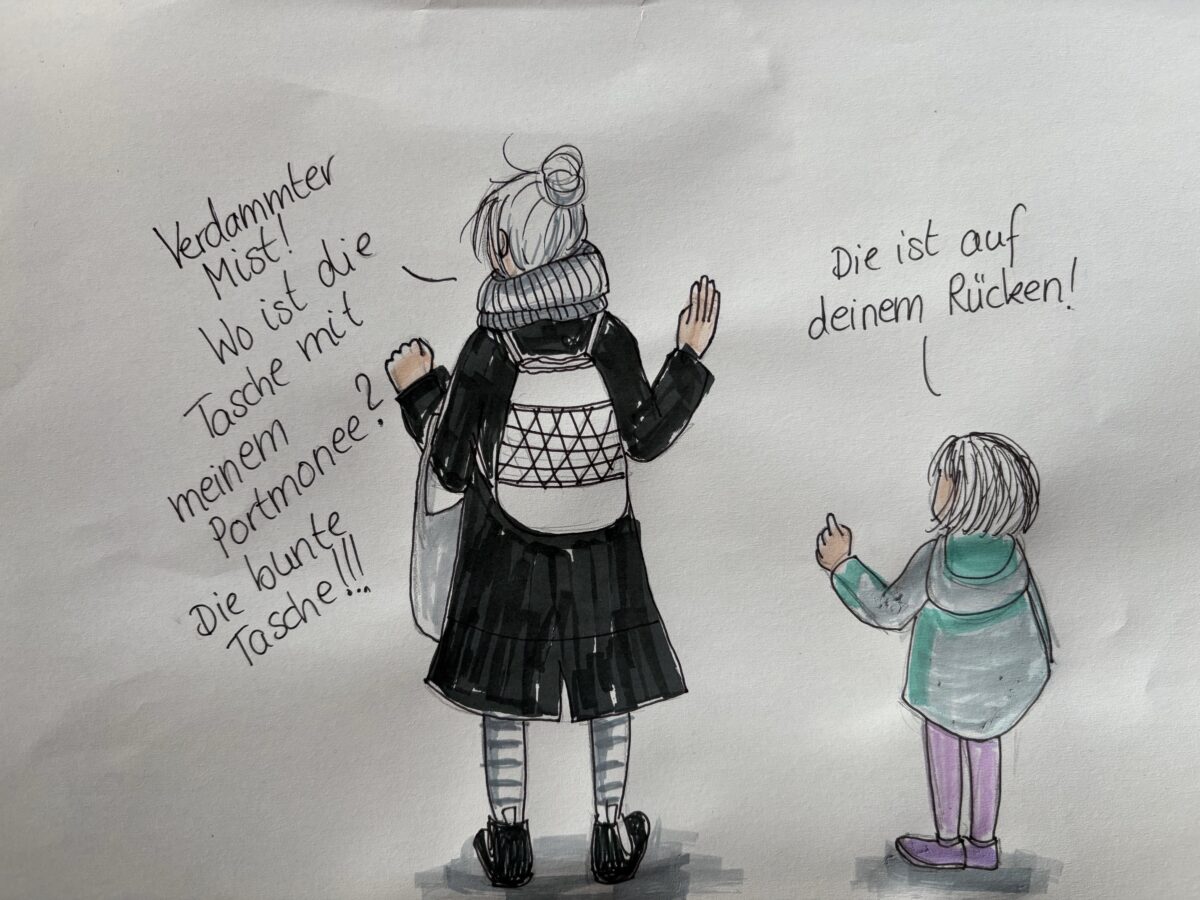 Verdammter
Mist!
Wo ist die
Tasche mit
meinem
Portmonee?
Die bunte
Tasche!!!
Die ist auf
deinem Rücken!